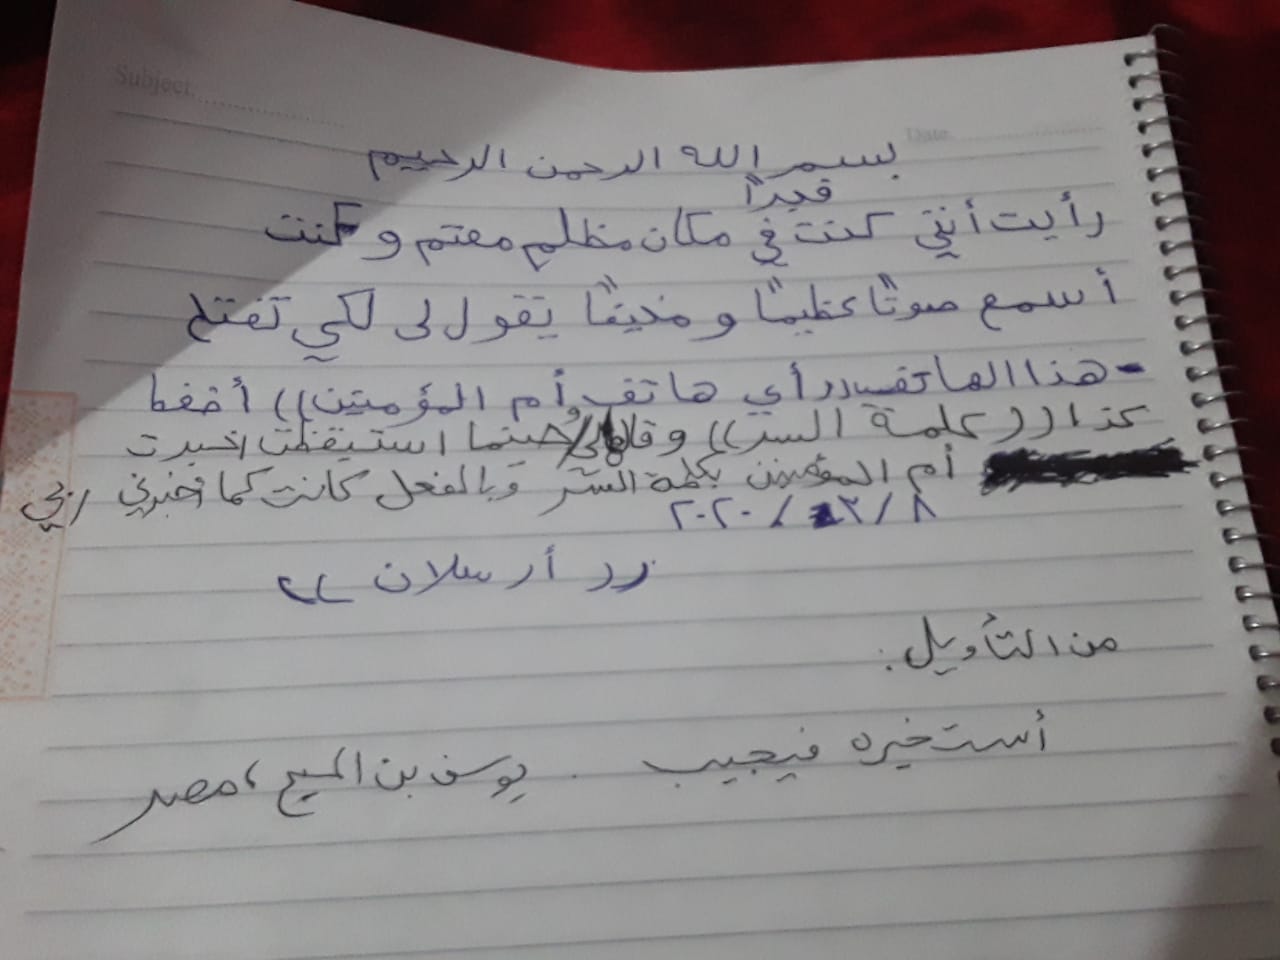 Subject
Date
بسم الله الرحمن الرحيم
رأيت أنني كنت في مكان مظلم معتم و كنت
أسمع صوتًا عظيمًا و مخيفًا يقول لى لكي تفتح
هذا الهاتف ((أي هاتف أم المؤمنين)) أضغط
كذا ((كلمة السر)) و حينما استيقظت اخبرت
أم المؤمنين بكلمة السر وبالفعل كانت كما أخبرني ربي
٨/ /٢٠٢٠
((أرسلان))
من التأويل:
أستخيره فيجيب . يوسف بن المسيح، مصر